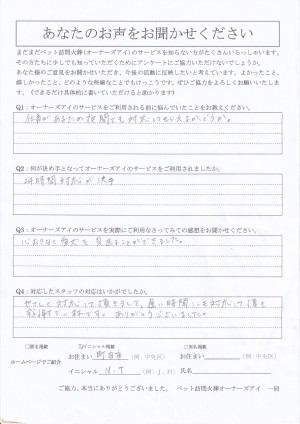 あなたのお声をお聞かせください
まだまだペット訪問火葬(オーナーズアイ)のサービスを知らない方がたくさんいらっしゃいます。
その方たちに少しでも知っていただくためにアンケートにご協力いただけないでしょうか。
あなた様のご意見をお聞かせいただき、今後の活動に反映したいと考えています。よかったこと、
嬉しかったこと、どのような些細なことでもけっこうです。ぜひご協力をよろしくお願いいたしま
す。(できるだけ具体的に書いていただけると助かります)
Q1：オーナーズアイのサービスをご利用される前に悩んでいたことをお教えください。
仕事があるため夜間でも対応してもらえるかどうか。
Q2：何が決め手となってオーナーズアイのサービスをご利用されましたか。
24時間対応が決手
Q3：オーナーズアイのサービスを実際にご利用なさってみての感想をお聞かせください。
心おきなく愛犬を見送ることができました。
Q4：対応したスタッフの対応はいかがでしたか。
やさしく対応して頂きまして、遅い時間にも対応して頂き
感謝で一杯です。ありがとうございました。
□匿名掲載 ☑イニシャル掲載 □実名掲載
ホームページでご紹介
お住まい 町田市 (例：中央区) お住まい (例：中央区)
イニシャル N.T (例：J.H) 氏名
ご協力、本当にありがとうございました。 ペット訪問火葬オーナーズアイ 一同